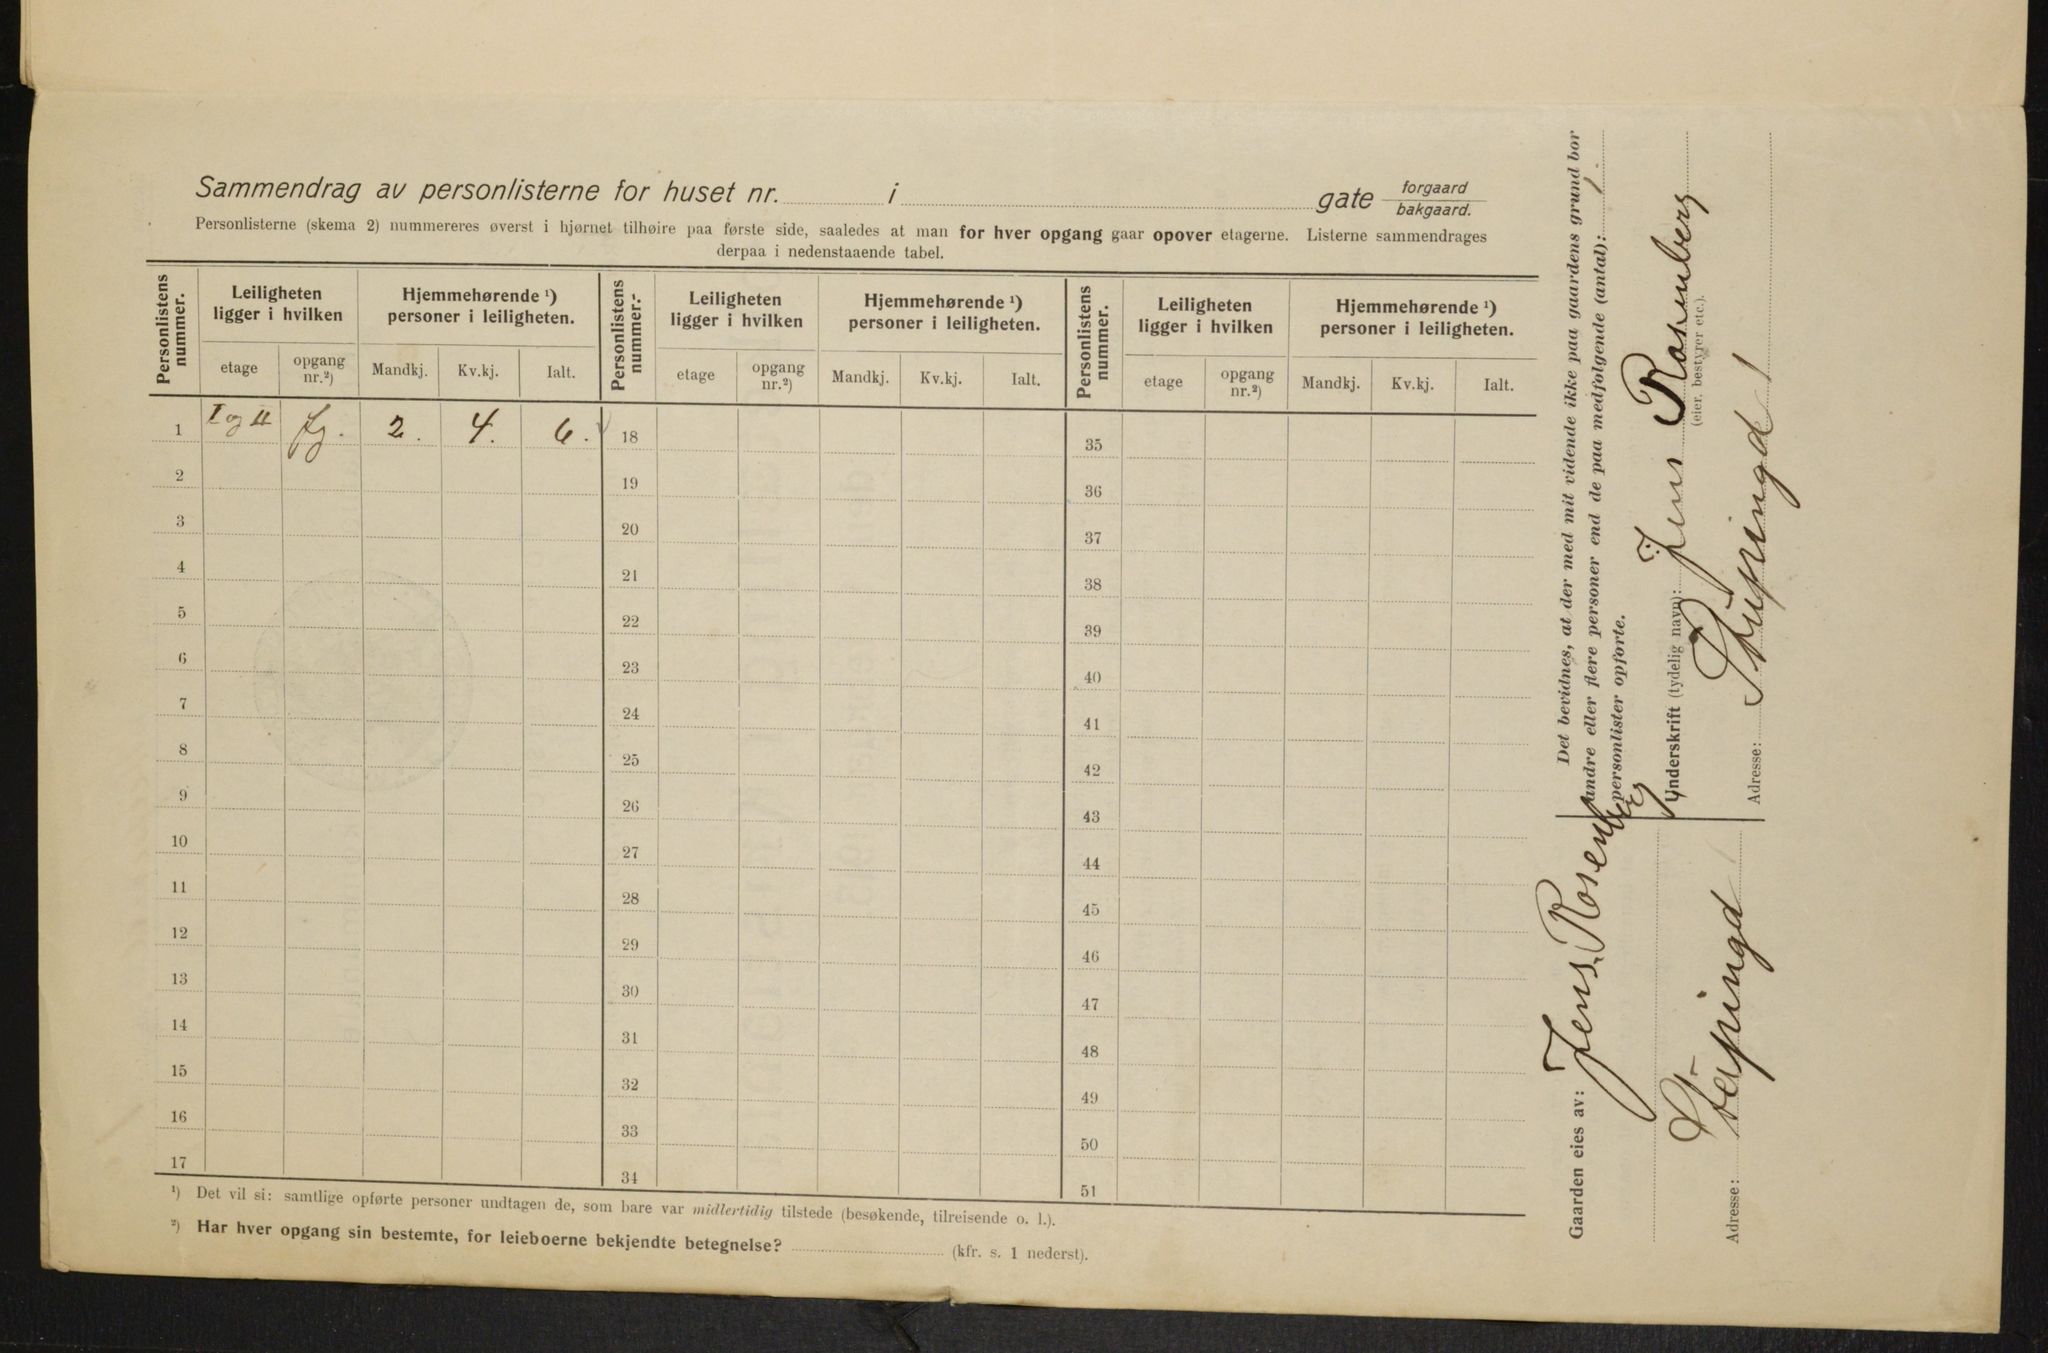 Sammendrag av personlisterne for huset nr. i gate forgaard bakgaard.
Personlisterne (skema 2) nummereres øverst i hjørnet tilhøire paa første side, saaledes at man for hver opgang gaar opover etagerne. Listerne sammendrages
derpaa i nedenstaaende tabel.
Personlistens nummer. Leiligheten ligger i hvilken Hjemmehørende ¹) personer i leiligheten. Personlistens nummer.- Leiligheten ligger i hvilken Hjemmehørende ¹) personer i leiligheten. Personlistens nummer. Leiligheten ligger i hvilken Hjemmehørende ¹) personer i leiligheten.
etage opgang nr.²) Mandkj. Kv.kj. Ialt. etage opgang nr.²) Mandkj. Kv.kj. Ialt. etage opgang nr.²) Mandkj. Kv.kj. Ialt.
1 I og II fg. 2. 4. 6. 18 35
2 19 36
3 20 37
4 21 38
5 22 39
6 23 40
7 24 41
8 25 42
9 26 43
10 27 44
11 28 45
12 29 46
13 30 47
14 31 48
15 32 49
16 33 50
17 34 51
¹) Det vil si: samtlige opførte personer undtagen de, som bare var midlertidig tilstede (besøkende, tilreisende o. l.).
²) Har hver opgang sin bestemte, for leieboerne bekjendte betegnelse? (kfr. s. 1 nederst).
Gaarden eies av: Jens Rosenberg
Adresse: Støpingd
Det bevidnes, at der med mit vidende ikke paa gaardens grund bor
andre eller flere personer end de paa medfølgende (antal): 1.
personlister opførte.
Underskrift (tydelig navn): Jens Rosenberg
(eier, bestyrer etc.).
Adresse: Støpingd 1